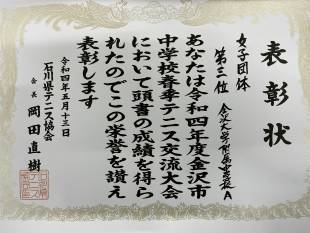 表彰状
女子団体
第三位 金沢大学附属中学校A
あなたは令和四年度金沢市
中学校春季テニス交流大会
において頭書の成績を得ら
れたのでこの栄誉を讃え
表彰します
令和四年五月十三日
石川県テニス協会
会長 岡田直樹